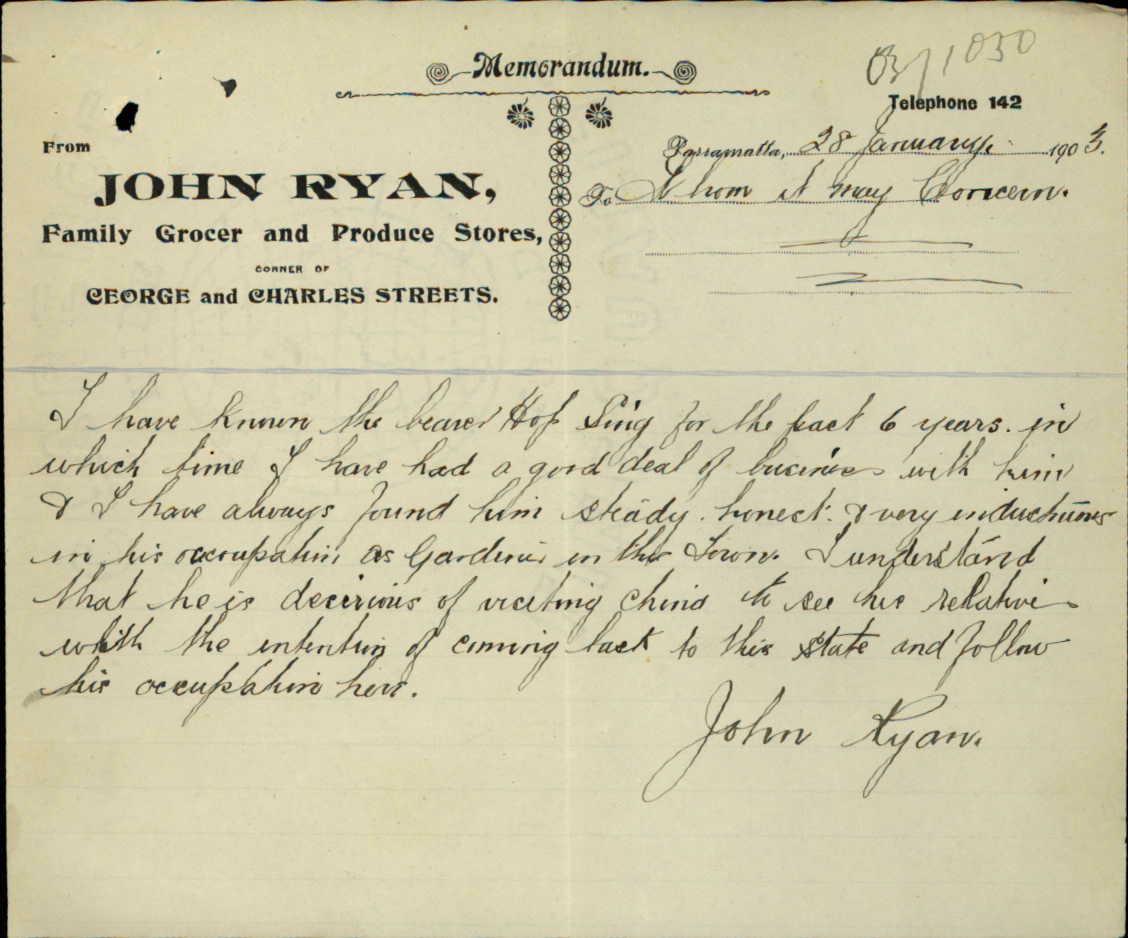 03/1050
Memorandum.
Telephone 142
From
Parramatta, 28 January. 1903.
JOHN RYAN,
To Whom it may Concern.
Family Grocer and Produce Stores,
CORNER OF
GEORGE and CHARLES STREETS.
I have known the bearer Hop Sing for the past 6 years. in
which time I have had a good deal of business with him
& I have always found him steady. honest. & very industrious
in his occupation as Gardener in this Town. I understand
that he is desirious of visiting China to see his relatives
with the intention of coming back to this state and follow
his occupation here.
John Ryan.